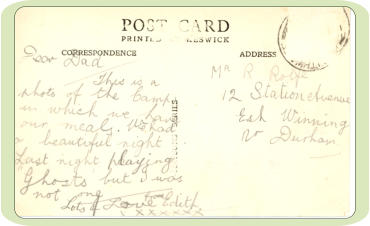 POST CARD
PRINTED KESWICK
CORRESPONDENCE
ADDRESS
Dear Dad
This is a
photo of the Camp
in which we have
our meals. We had
a beautiful night
Last night playing
"Ghosts but i was
not one
Lots of Love Edith
x x x x x x x
Mr R Rolfe
12 Station Avenue
Esh Winning
Nr Durham
SERIES